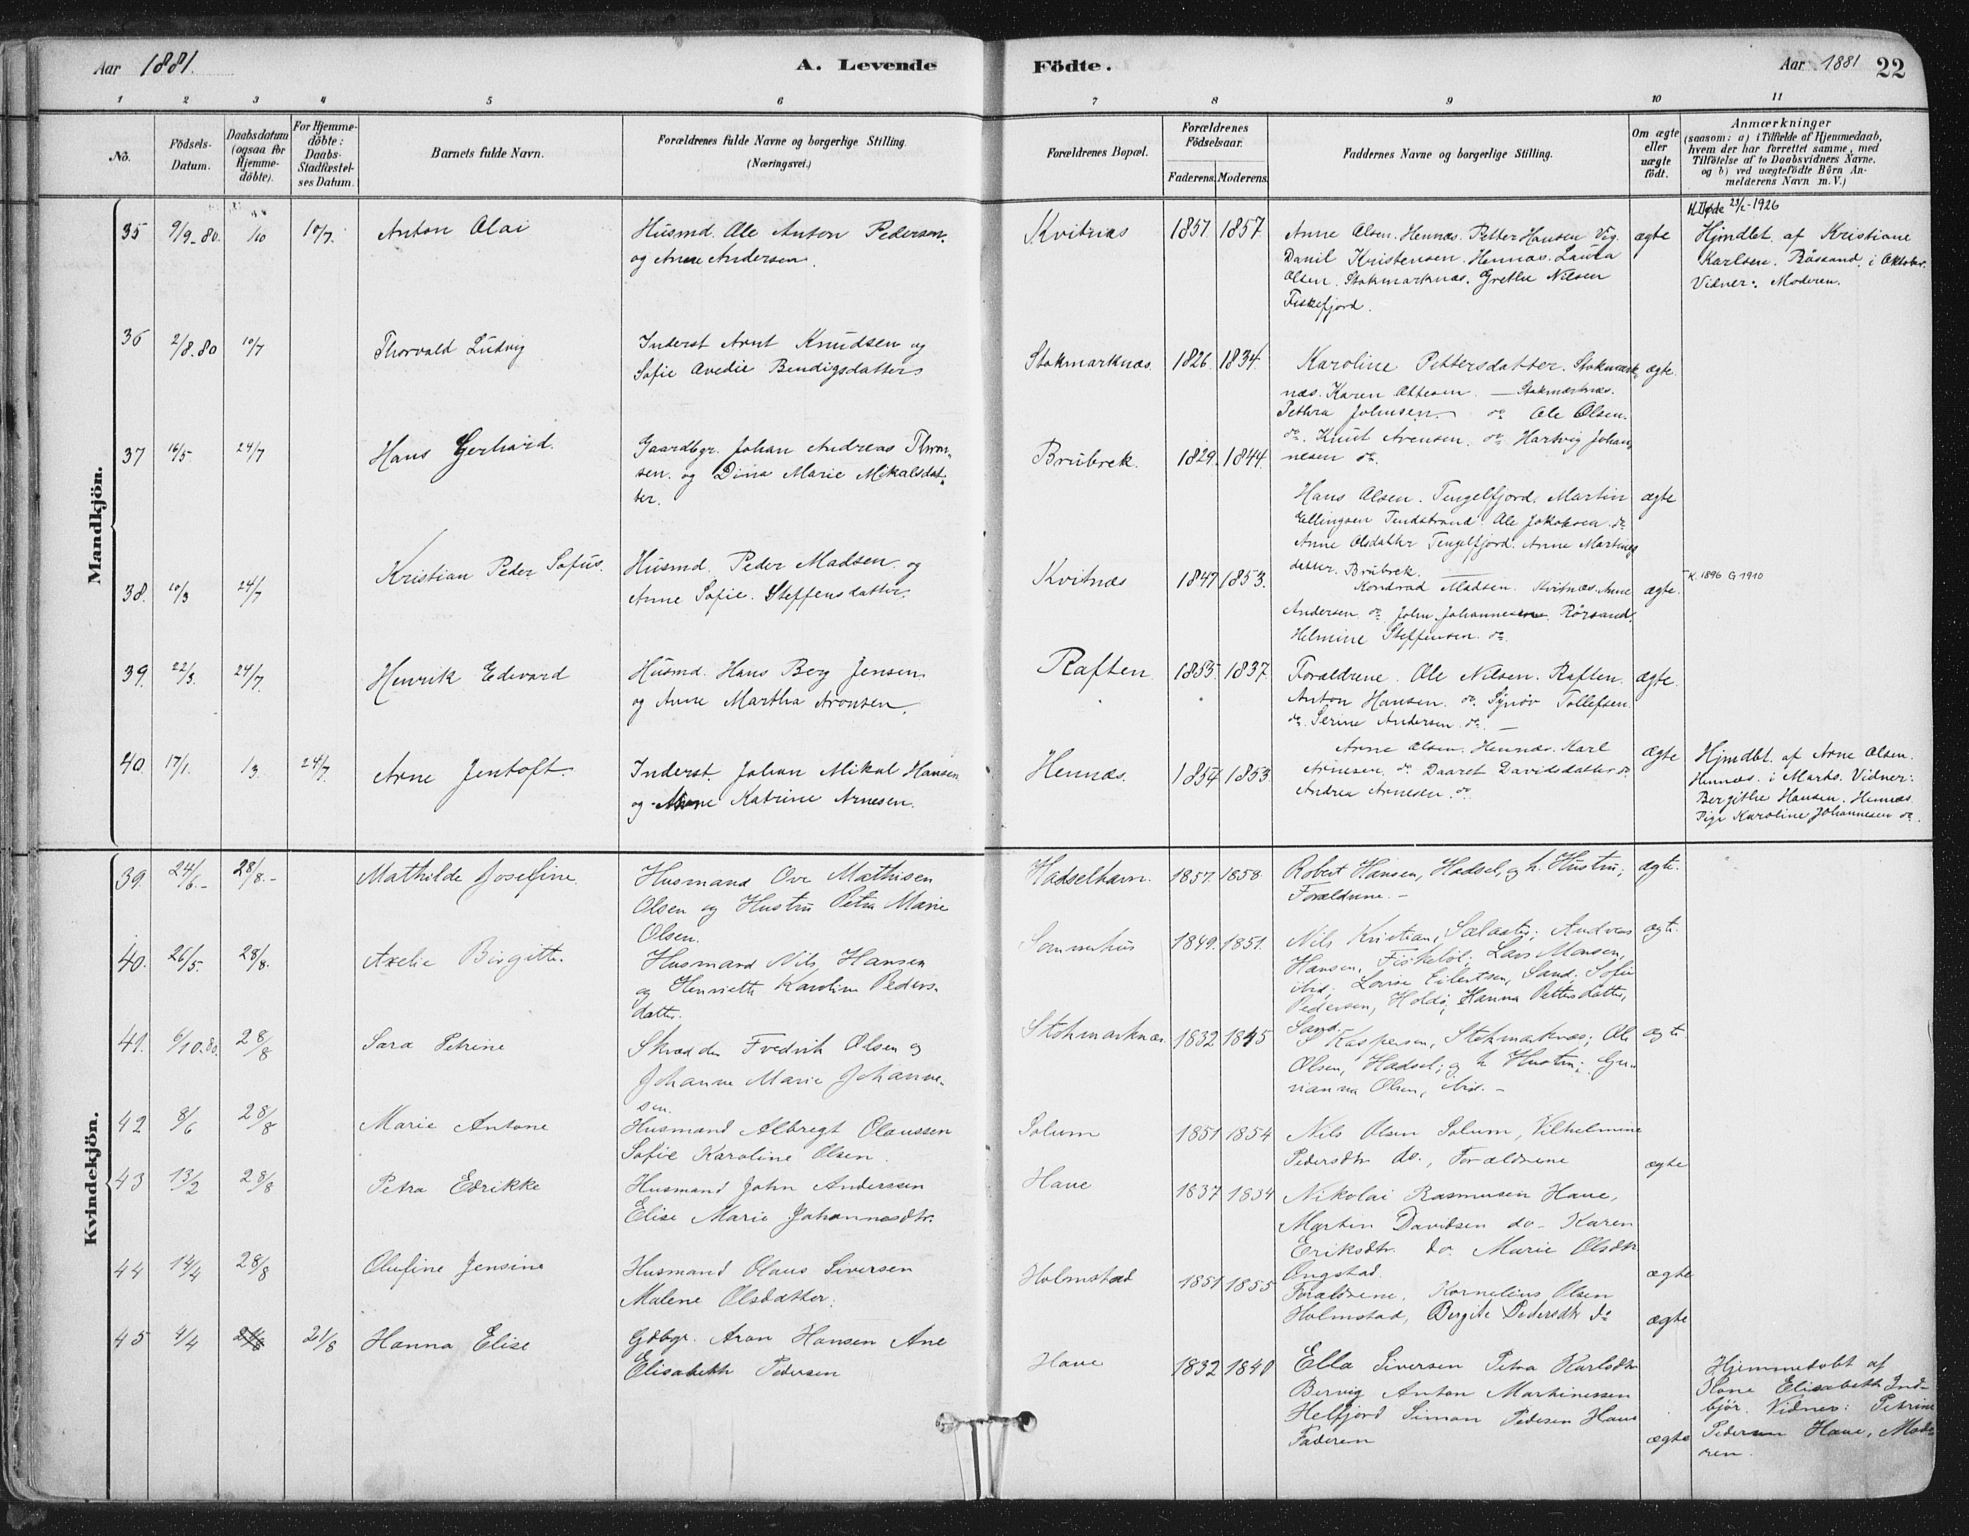 Aar 1881. A. Levende Födte. Aar 1881 22
1 2 3 4 5 6 7 8 9 10 11
No.
Födsels-Datum.
Daabsdatum (ogsaa for Hjemme-döbte).
For Hjemme-döbte: Daabs-Stadfæstel-ses Datum.
Barnets fulde Navn.
Forældrenes fulde Navne og borgerlige Stilling. (Næringsvei.)
Forældrenes Bopæl.
Forældrenes Födselsaar.
Faderens. Moderens.
Faddernes Navne og borgerlige Stilling.
Om ægte eller uægte födt.
Anmærkninger
(saasom: a) i Tilfælde af Hjemmedaab,
hvem der har forrettet samme, med
Tilföielse af to Daabsvidners Navne,
og b) ved uægtefödte Börn An-
melderens Navn m. V.)
Mandkjön.
35 9/9-80 10/7 Anton Olai
Husmd. Ole Anton Pedersen
og Anne Andersen.
Kvitnæs 1857 1857
Anne Olsen. Hennæs. Petter Hansen Vig.
Danil Kristensen. Hennæs. Laura
Olsen. Stokmarknæs. Grethe Nilsen
Fiskefjord.
ægte
23/2-1926
Hjmdbt. af Kristiane
Karlsen. Rössand. i Oktober.
Vidner: Moderen.
36 2/8.80 10/7 Thorvald Ludvig
Inderst Arnt Knudsen og
Sofie Avedie Bendigsdatter
Stokmarknæs. 1826 1834
Karoline Pettersdatter. Stokmark-
næs. Karen Ottesen — Stokmarknæs.
Pethra Johnsen. do Ole Olsen.
do. Knut Arensen. do Hartvig Johan-
nesen do.
ægte.
37 16/5 24/7 Hans Gerhard.
Gaardbgr. Johan Andreas Thom-
sen. og Dina Marie Mikalsdat-
ter.
Brubrek. 1829. 1844.
Hans Olsen. Tengelfjord. Martin
Ellingsen Tendstrand. Ole Jakobsen do
Anne Olsdatter Tengelfjord. Anne Martines
datter. Brubrek.
ægte
38. 10/3 24/7 Kristian Peder Sofus.
Husmd. Peder Madsen og
Anne Sofie Steffensdatter.
Kvitnæs 1847 1853.
Kondrad Madsen. Kvitnæs. Anne
Andersen do John Johannesen Rörsand.
Helmine Steffensen. do
ægte.
K. 1896 G 1910
39. 22/3. 24/7. Henrik Edevard
Husmd. Hans Berg Jensen
og Anne Martha Aronsen.
Raften 1853 1837
Foraldrene. Ole Nilsen. Raften.
Anton Hansen. do Synöv Tollefsen.
do. Serine Andersen. do —
ægte.
40. 17/1. /3. 24/7. Arne Jentoft.
Inderst. Johan Mikal Hansen
og Anne Katrine Arnesen.
Hennæs. 1854 1853
Anne Olsen. Hennæs. Karl
Arnesen. do Daaret Davidsdatter do
Andrea Arnesen. do
ægte
Hjmdbt. af Arne Olsen.
Hennæs. i Marts. Vidner:
Bergithe Hansen. Hennæs
Pige Karoline Johannesen do.
Kvindekjön.
39. 24/6.- 28/8.- Mathilde Josefine.
Husmand Ove Mathisen
Olsen og Hustru Petra Marie
Olsen.
Hadselhavn. 1857. 1858
Robert Hansen, Hadsel, og h. Hustru;
Forældrene. -
ægte.
40. 26/5. 28/8. Axelie Birgitte.
Husmand Nils Hansen
og Henriette Karoline Peders-
datter.
Sommerhus 1849. 1851.
Nils Kristian, Salaater; Andreas
Hansen, Fiskeböl; Lars Monsen,
ibid; Lovise Eilertsen, Sand; Sofie
Pedersen, Holdö; Hanna Pettersdatter,
Sand.
ægte.
41. 6/10.80. 28/8 Sara Petrine
Skræder Fredrik Olsen og
Johanne Marie Johanne-
sen.
Stokmarknæs 1832 1845
S Kaspersen, Stokmarknæs; Ole
Olsen, Hadsel; og h Hustru; Gu-
rianna Olsen, ibid. -
ægte.
42 8/6 28/8 Marie Antone
Husmand Albregt Olaussen
Sofie Karoline Olsen.
Solum 1851 1854
Nils Olsen Solum, Vilhelmine
Pedersdtr do., Forældrene
ægte
43 13/2 28/8 Petra Edrikke
Husmand John Anderssen
Elise Marie Johannesdtr.
Haue 1837 1834
Nikolai Rasmusen Haue,
Martin Davidsen do- Karen
Eriksdtr. do. Marie Olsdtr
Ongstad.
ægte
44 14/4 28/8 Olufine Jensine
Husmand Olaus Siversen
Malene Olsdatter.
Holmstad 1851 1855
Forældrene, Kornelius Olsen
Holmstad, Bergite Pedersdtr do
ægte
45 4/4 21/8 21/8 Hanna Elise
Gdbgr. Aron Hansen Ane
Elisabeth Pedersen
Haue 1832 1840
Ella Siversen Petra Karlsdtr
Bervig Anton Martinessen
Helfjord Simon Pedersen Haue
Faderen
ægte
Hjemmedöbt af
Kone Elisabeth Ind-
björ. Vidner: Petrine
Pedersen Haue, Mode-
ren.